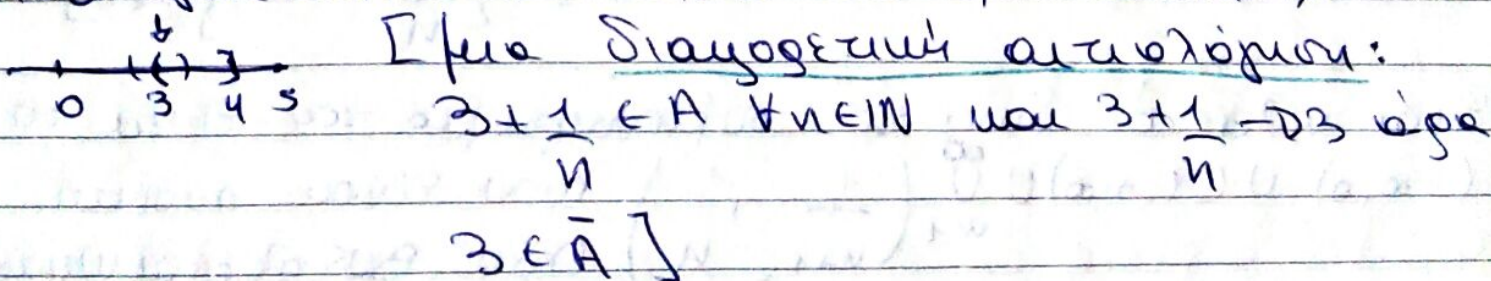 [μια διαφορετική αιτιολόγηση:
0 3 4 5
3+1/n ∈ A ∀n∈ℕ και 3+1/n → 3 άρα
3 ∈ Ā ]